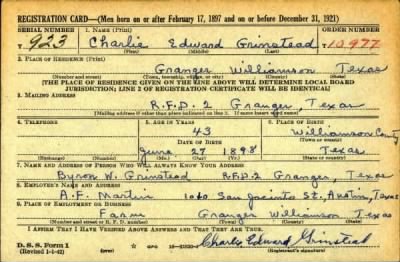 REGISTRATION CARD—(Men born on or after February 17, 1897 and on or before December 31, 1921)
SERIAL NUMBER 1. NAME (Print) ORDER NUMBER
T 923 Charlie Edward Grinstead 10977
(First) (Middle) (Last)
2. PLACE OF RESIDENCE (Print)
Granger Williamson Texas
(Number and street) (Town, township, village, or city) (County) (State)
[THE PLACE OF RESIDENCE GIVEN ON THE LINE ABOVE WILL DETERMINE LOCAL BOARD
JURISDICTION; LINE 2 OF REGISTRATION CERTIFICATE WILL BE IDENTICAL]
3. MAILING ADDRESS
R.F.D. 2 Granger, Texas
[Mailing address if other than place indicated on line 2. If same insert word same]
4. TELEPHONE 5. AGE IN YEARS 6. PLACE OF BIRTH
43 Williamson County
DATE OF BIRTH (Town or county)
June 27 1898 Texas
(Exchange) (Number) (Mo.) (Day) (Yr.) (State or country)
7. NAME AND ADDRESS OF PERSON WHO WILL ALWAYS KNOW YOUR ADDRESS
Byron W. Grinstead R.F.D. 2 Granger, Texas
8. EMPLOYER'S NAME AND ADDRESS
A.F. Martin 1040 San Jacinto St. Austin, Texas
9. PLACE OF EMPLOYMENT OR BUSINESS
Farm Granger Williamson Texas
(Number and street or R. F. D. number) (Town) (County) (State)
I AFFIRM THAT I HAVE VERIFIED ABOVE ANSWERS AND THAT THEY ARE TRUE.
D. S. S. Form 1
(Revised 1-1-42) (over) Charlie Edward Grinstead
(Registrant's signature)